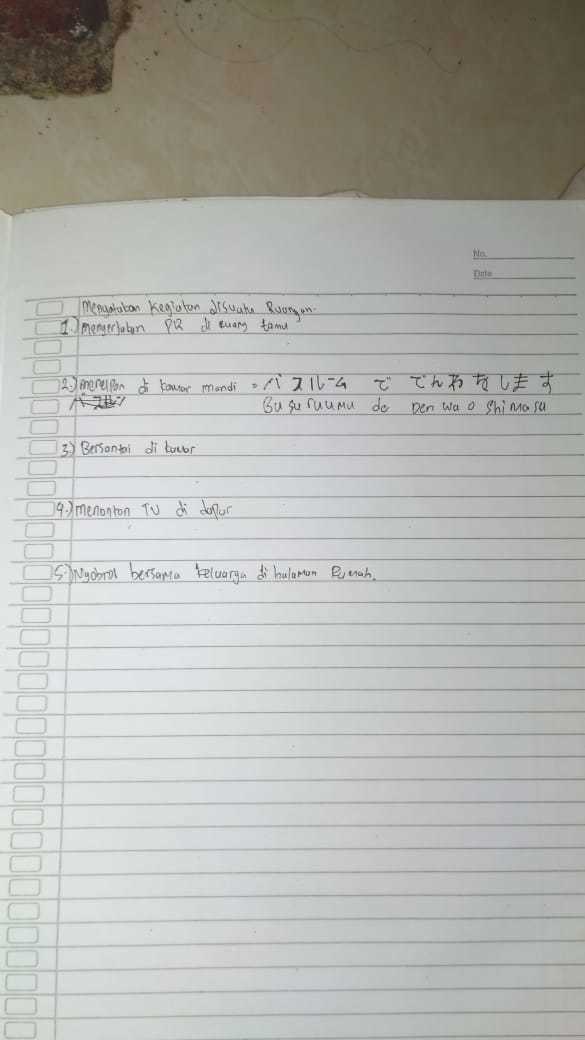 No.
Date
Menyatakan Kegiatan disuatu Ruangan.
1.) mengerjakan PR di ruang tamu
2.) menelpon di kamar mandi = バスルーム で でんわをします
Basuruumu de Denwa o shimasu
3.) Bersantai di kamar
4.) menonton TV di dapur
5.) Ngobrol bersama keluarga di halaman Rumah.